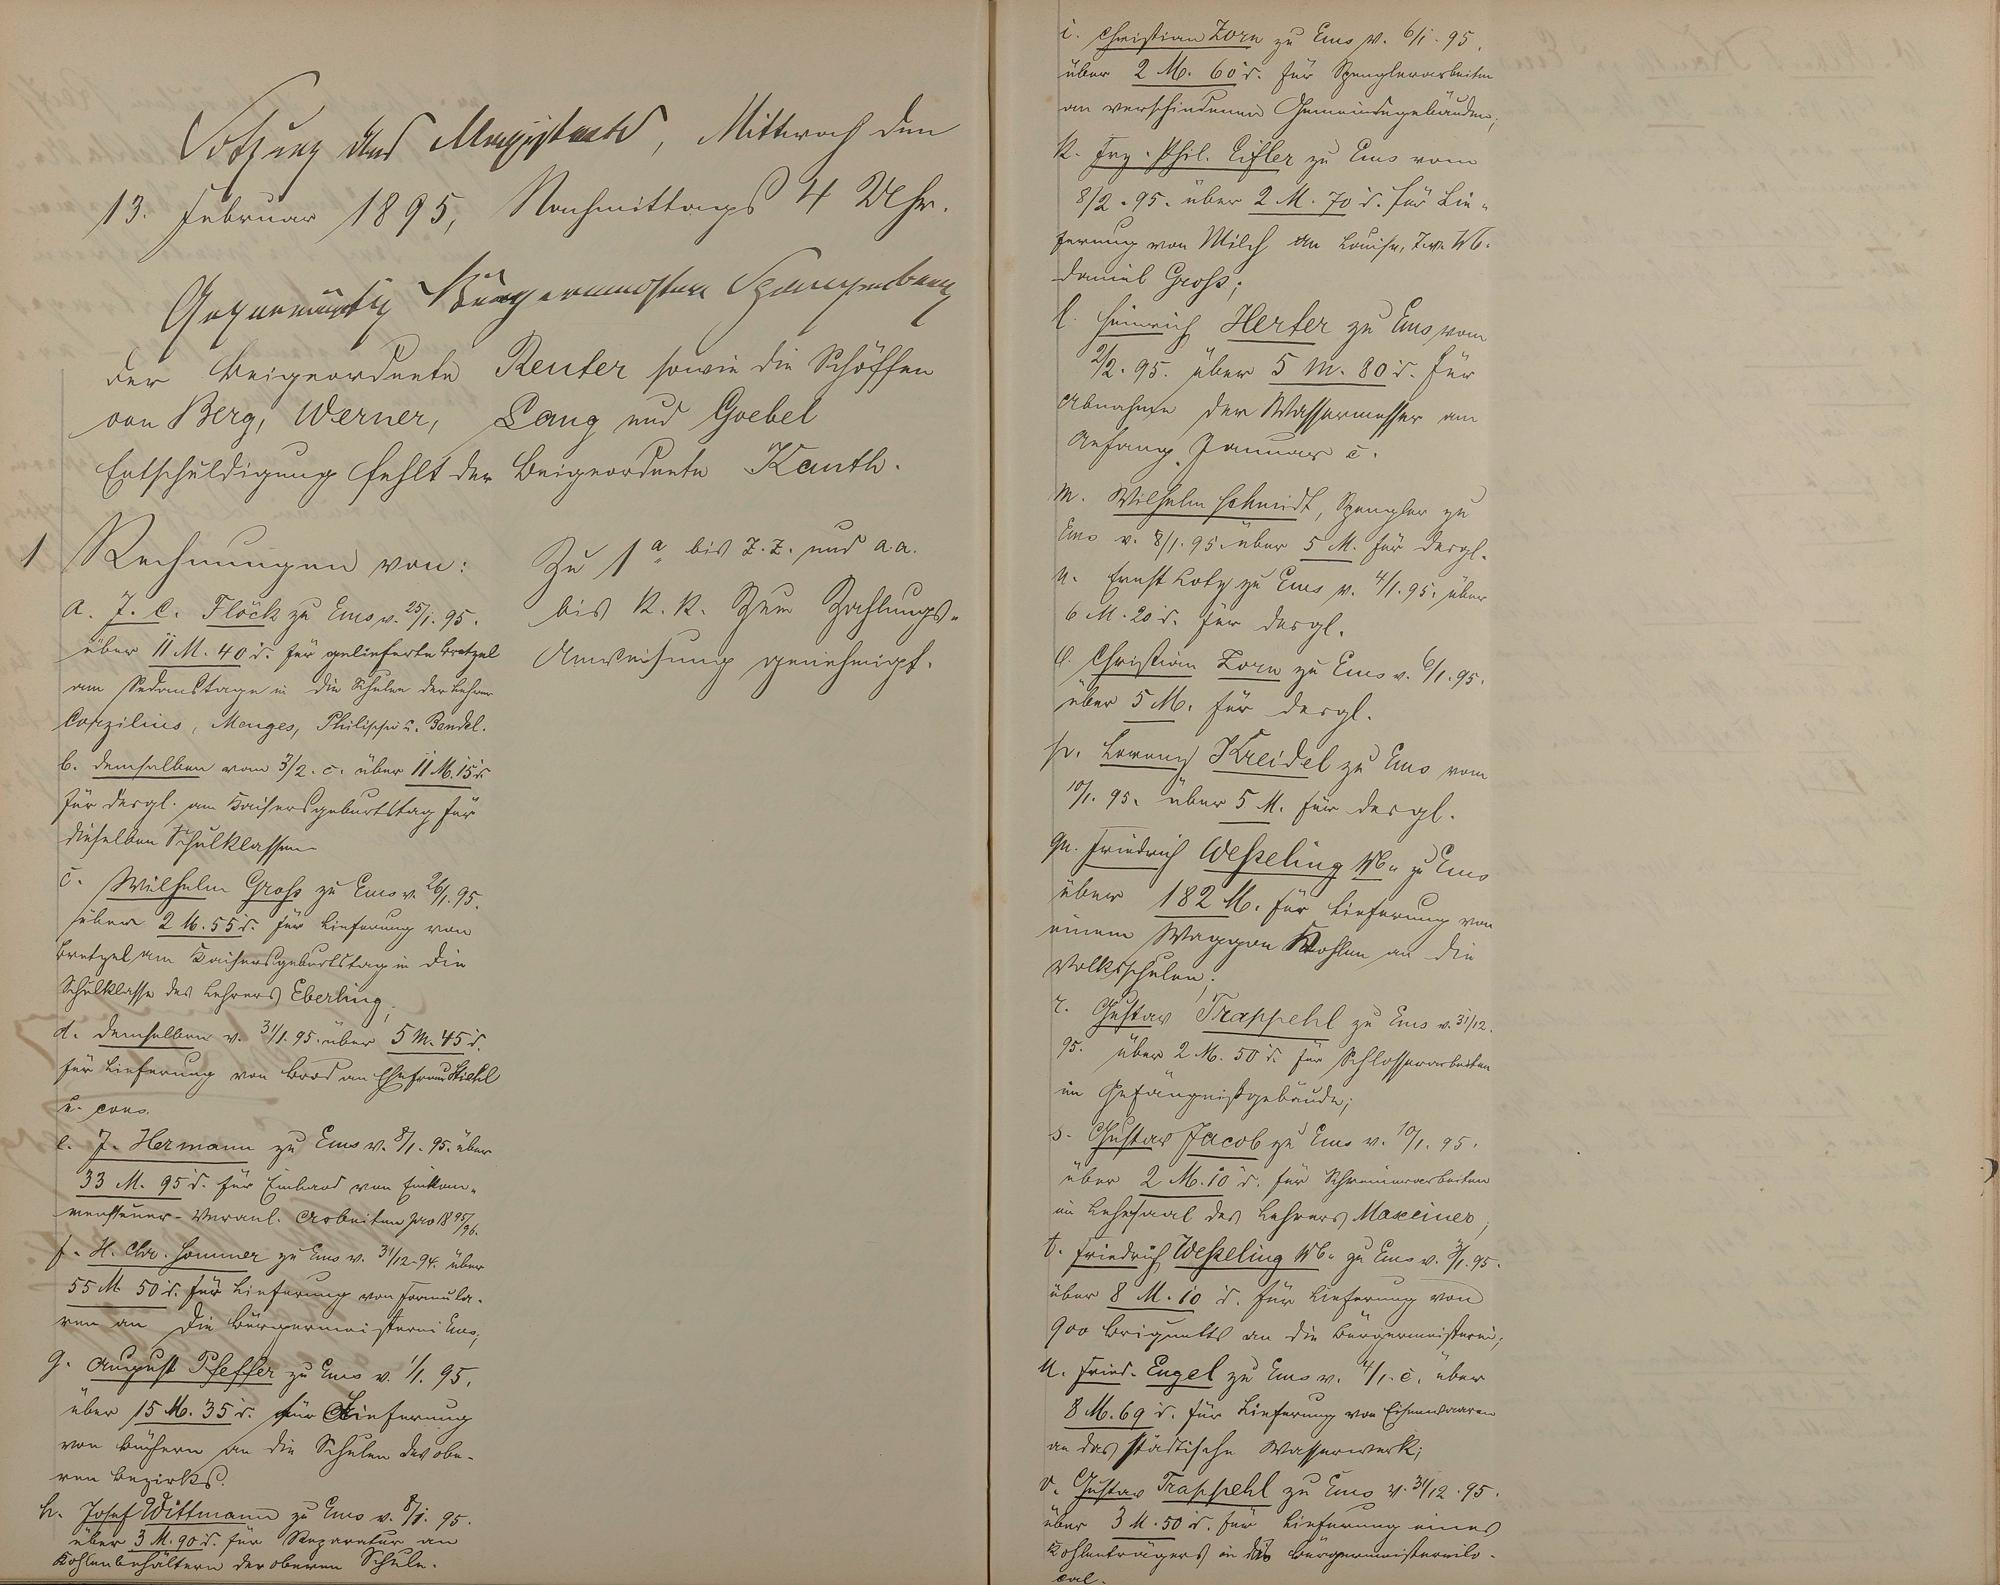 Sitzung des Magistrats, Mittwoch den
13. Februar 1895, Nachmittags 4 Uhr.
Gegenwärtig Bürgermeister Spangenberg
der Beigeordnete Reuter sowie die Schöffen
von Berg, Werner, Lang und Goebel
Entschuldigung fehlt der Beigeordnete Kauth.
1 Rechnungen von:
a. J. C. Flöck zu Ems v. 25/1. 95.
über 11 M. 40 d. für gelieferte Bretzel
am Sedanstage in die Schulen der Lehrer
Corzilius, Menges, Philippi u. Bendel.
b. demselben vom 3/2. c. über 11 M. 15 d
für desgl. am Kaisersgeburtstag für
dieselben Schulklassen
c. Wilhelm Groß zu Ems v. 26/1. 95.
über 2 M. 55 d. für Lieferung von
Bretzel am Kaisersgeburtstag in die
Schulklasse des Lehrers Eberling;
d. demselben v. 31/1. 95. über 5 M. 45 d.
für Lieferung von Brod an Ehefrau
u. cons.
e. J. Hermann zu Ems v. 8/1. 95. über
33 M. 95 d. für Einband von Einkom-
mensteuer-Veranl. Arbeiten pro 1895/96.
f. H. Chr. Sommer zu Ems v. 31/12. 94. über
55 M. 50 d. für Lieferung von Formula-
ren an die Bürgermeisterei Ems;
g. August Pfeffer zu Ems v. 1/1. 95.
über 15 M. 35 d. für Lieferung
von Büchern an die Schulen des obe-
ren Bezirks.
h. Josef Wittmann zu Ems v. 8/1. 95.
über 3 M. 90 d. für Reparatur an
Kohlenbehältern der oberen Schule.
Zu 1 a bis z.z. und a.a.
bis k.k. Zur Zahlungs-
Anweisung genehmigt.
i. Christian Zorn zu Ems v. 6/1. 95.
über 2 M. 60 d. für Spenglerarbeiten
an verschiedenen Gemeindegebäuden;
k. Frz. Phil. Eifler zu Ems vom
8/2. 95. über 2 M. 70 d. für Lie-
ferung von Milch an Louise, T. v. Wb.
Daniel Groß;
l. Heinrich Herter zu Ems vom
2/2. 95. über 5 M. 80 d. für
Abnahme der Wassermesser am
Anfang Januar c.
m. Wilhelm Schmidt, Spengler zu
Ems v. 8/1. 95. über 5 M. für desgl.
n. Ernst Lotz zu Ems v. 4/1. 95. über
6 M. 20 d. für desgl.
o. Christian Zorn zu Ems v. 6/1. 95.
über 5 M. für desgl.
p. Lorenz Kreidel zu Ems vom
10/1. 95. über 5 M. für desgl.
qu. Friedrich Weßeling Wb. zu Ems
über 182 M. für Lieferung von
einem Waggon Kohlen an die
Volksschulen;
r. Gustav Trappehl zu Ems v. 31/12.
95. über 2 M. 50 d. für Schlosserarbeiten
im Gefängnißgebäude;
s. Gustav Jacob zu Ems v. 10/1. 95.
über 2 M. 10 d. für Schreinerarbeiten
im Lehrsaal des Lehrers Maxeiner;
t. Friedrich Weßeling Wb. zu Ems v. 3/1. 95.
über 8 M. 10 d. für Lieferung von
900 Briquetts an die Bürgermeisterei;
u. Fried. Engel zu Ems v. 4/1. c. über
8 M. 69 d. für Lieferung von Eisenwaaren
an das städtische Wasserwerk;
v. Gustav Trappehl zu Ems v. 31/12. 95.
über 3 M. 50 d. für Lieferung eines
Kohlenträgers in das Bürgermeistereilo-
cal.